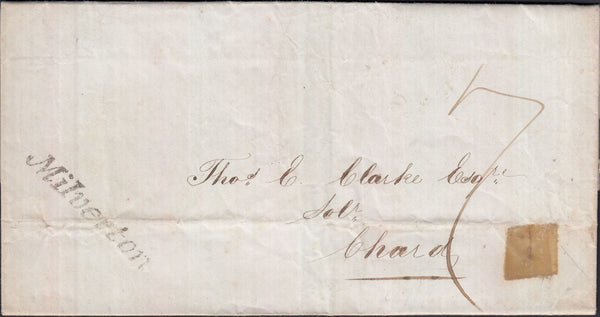 7
Thos. E. Clarke Esqr.
Solr.
Chard
Milverton